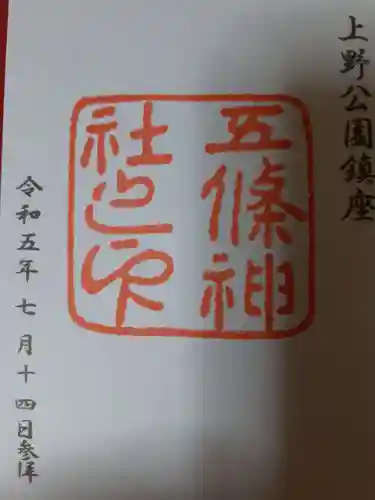 上野公園鎮座
五條神
社之印
令和五年七月十四日参拝